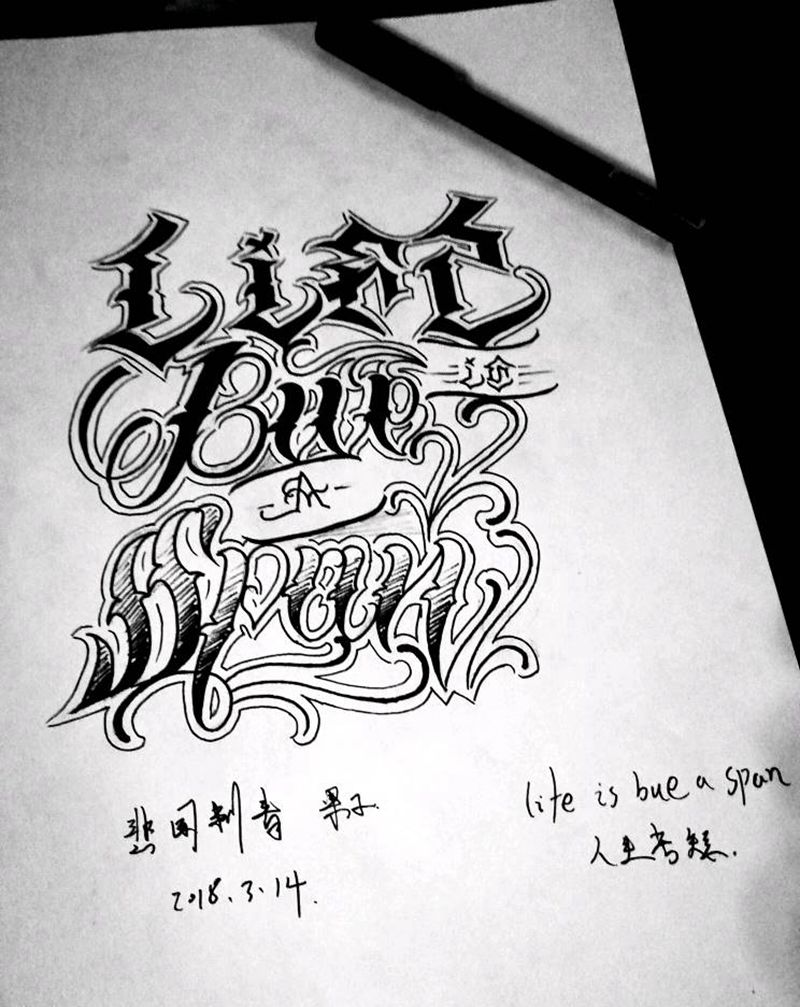 Life
is
Bue
A
Span
life is bue a span
人生苦短.
悲困刺青 果子
2018.3.14.